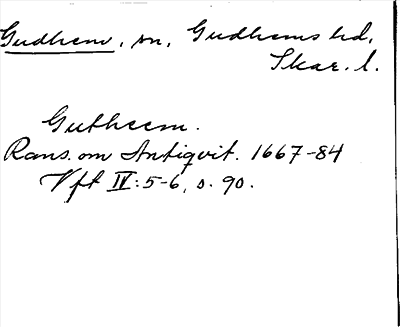 Gudhem, sn, Gudhems hd,
Skar. l.
Gutheem.
Rans. om Antiqvit. 1667-84
Vft IV:5-6, s. 90.